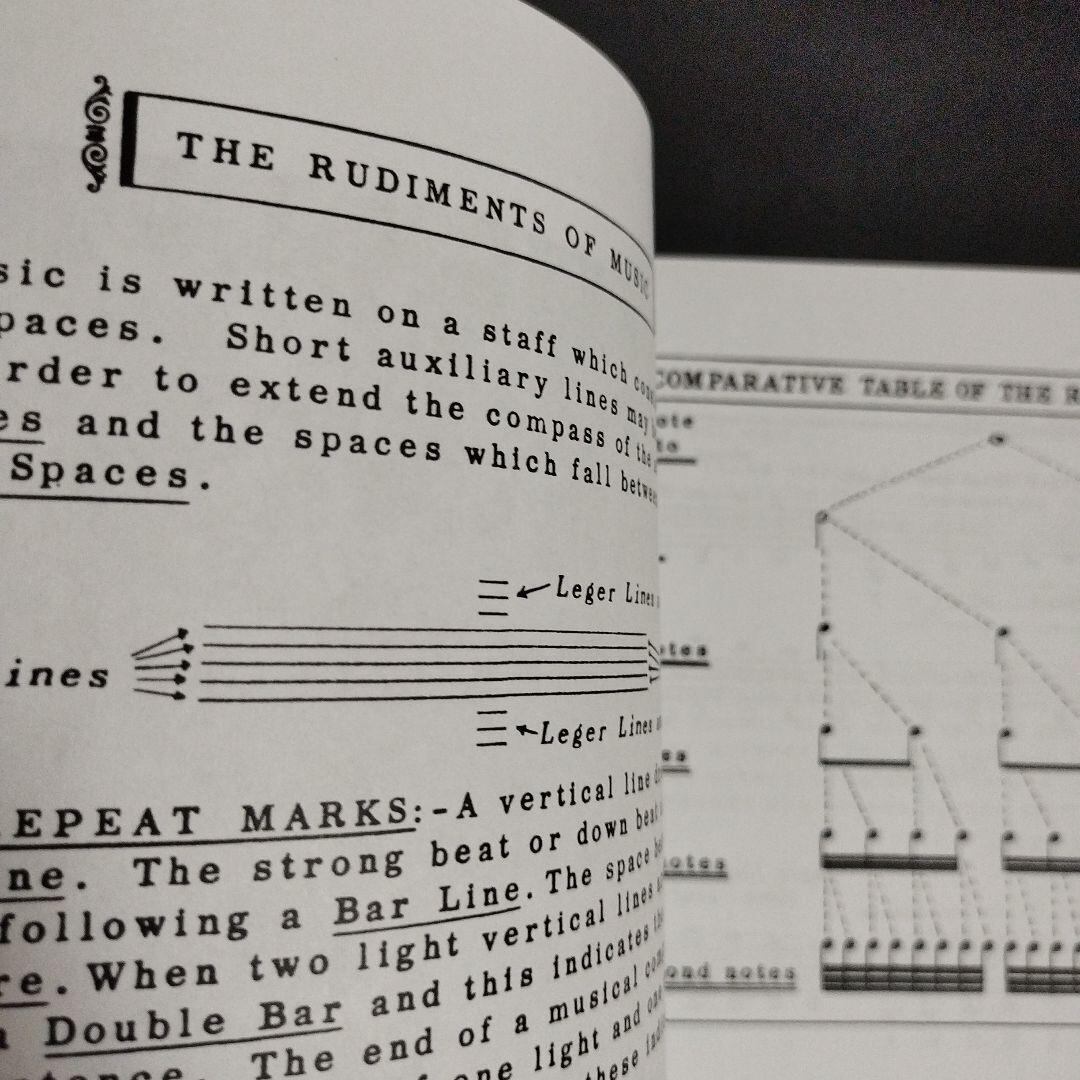 THE RUDIMENTS OF MUSIC
sic is written on a staff which
paces. Short auxiliary lines may
rder to extend the compass of the
es and the spaces which fall betwe
Spaces.
Leger Lines
ines
Leger Lines
EPEAT MARKS:-A vertical line
ne. The strong beat or down beat
following a Bar Line. The space
re. When two light vertical lines
Double Bar and this indicates
The end of a musical
one light and
these
COMPARATIVE TABLE OF THE R
ote
otes
es
notes
ond notes